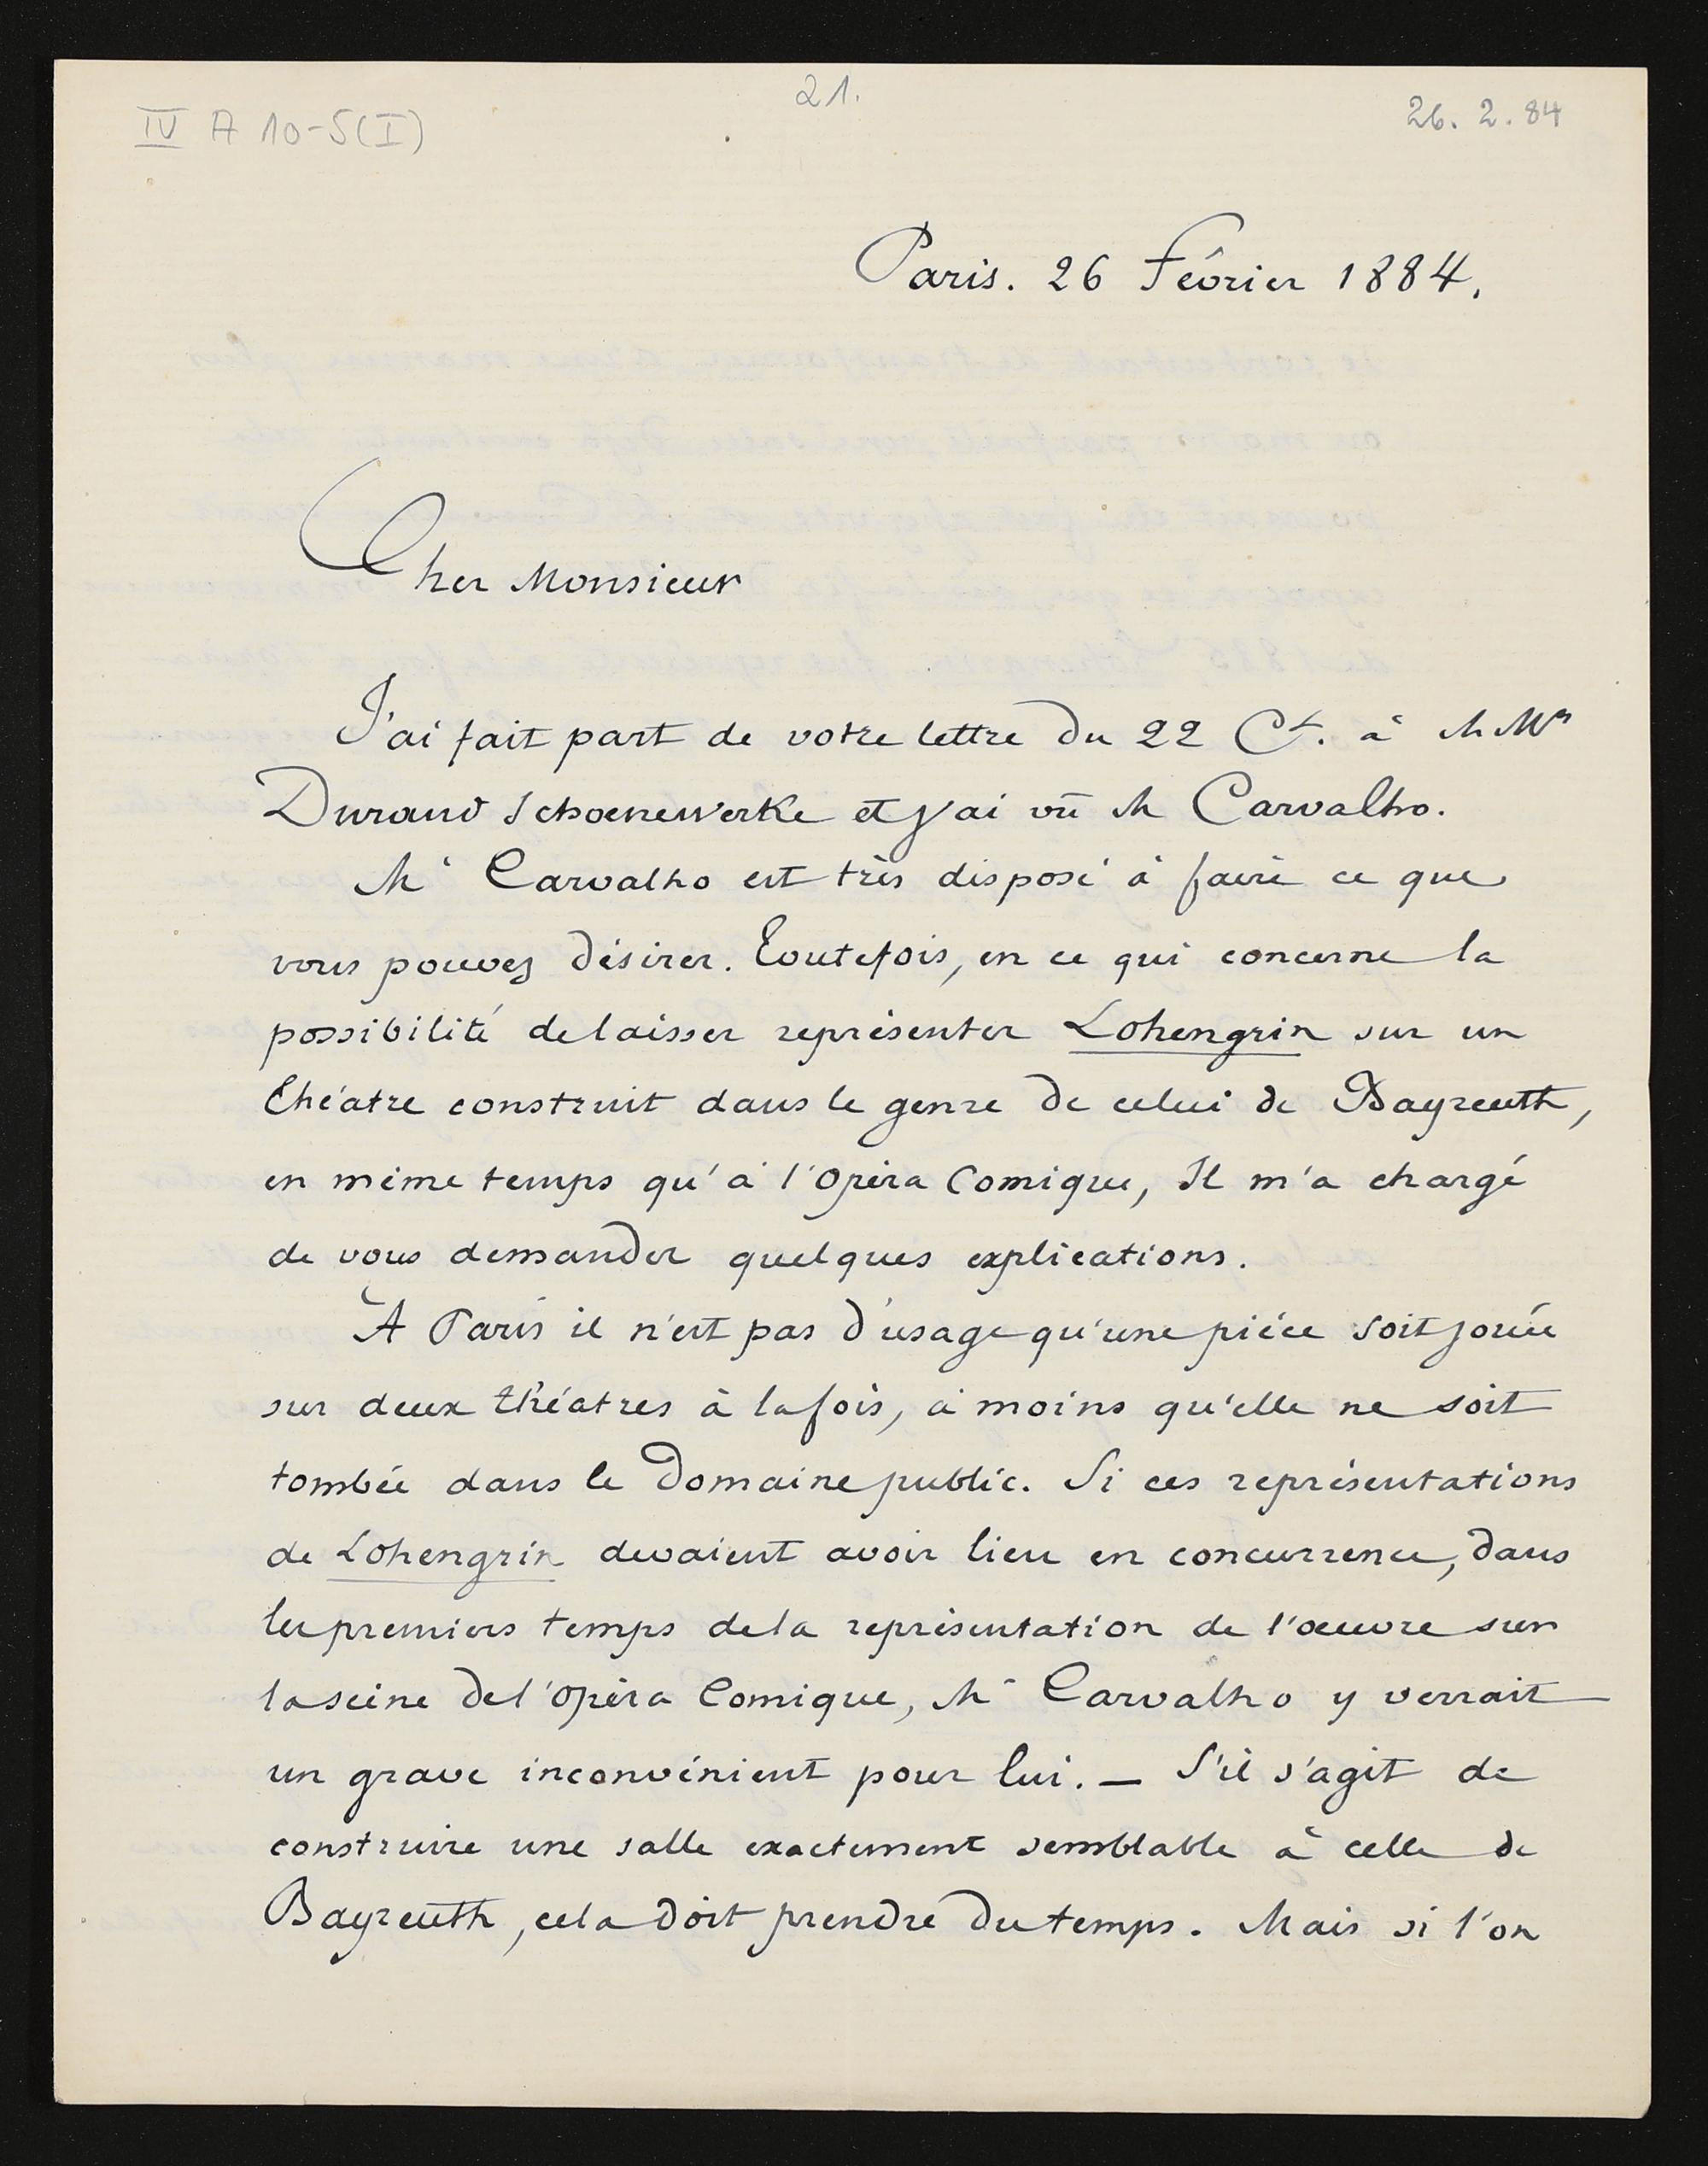 IV A 10-5(I)
21.
26. 2. 84
Paris. 26 Février 1884.
Cher Monsieur
J'ai fait part de votre lettre du 22 Ct. à MMrs
Durand Schoenewerke et j'ai vu M Carvalho.
Mr Carvalho est très disposé à faire ce que
vous pouvez désirer. Toutefois, en ce qui concerne la
possibilité de laisser représenter Lohengrin sur un
théâtre construit dans le genre de celui de Bayreuth,
en même temps qu'à l'Opéra Comique, Il m'a chargé
de vous demander quelques explications.
A Paris il n'est pas d'usage qu'une pièce soit jouée
sur deux théâtres à la fois, à moins qu'elle ne soit
tombée dans le domaine public. Si ces représentations
de Lohengrin devaient avoir lieu en concurrence, dans
les premiers temps de la représentation de l'œuvre sur
la scène de l'Opéra Comique, Mr Carvalho y verrait
un grave inconvénient pour lui. — S'il s'agit de
construire une salle exactement semblable à celle de
Bayreuth, cela doit prendre du temps. Mais si l'on